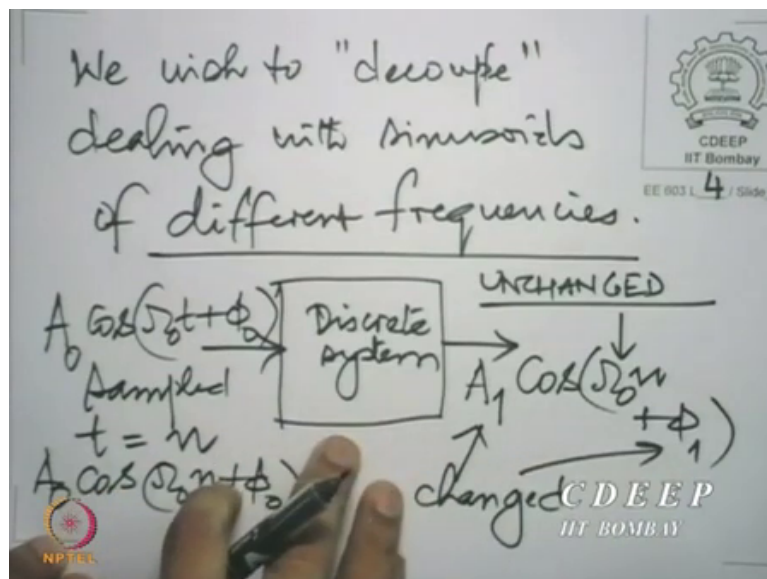 We wish to "decouple"
dealing with sinusoids
of different frequencies.
CDEEP
IIT Bombay
EE 603 L 4 / Slide
UNCHANGED
A₀ Cos(Ω₀t+ϕ₀)
Discrete
system
A₁ Cos(Ω₀n
+ϕ₁)
Sampled
t = n
A₀ Cos(Ω₀n+ϕ₀)
changed
CDEEP
IIT BOMBAY
NPTEL